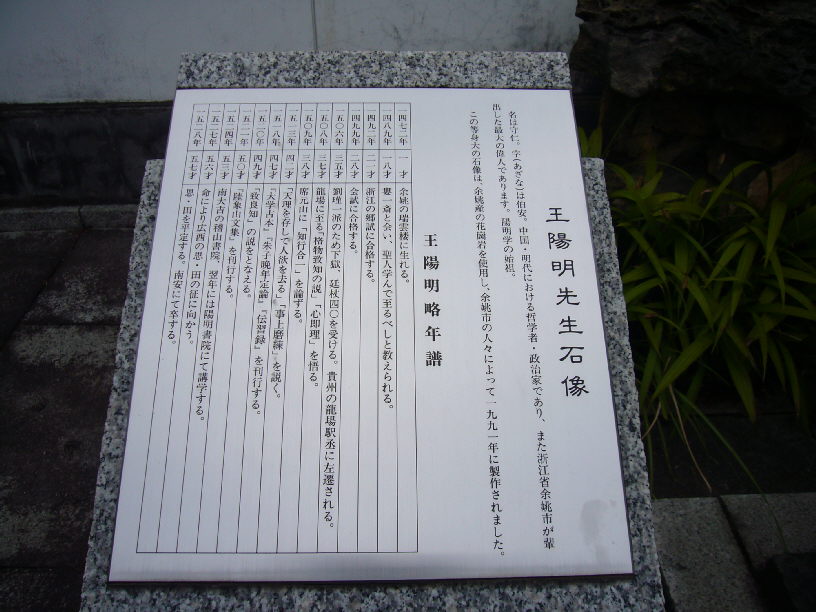 王陽明先生石像
名は守仁。字(あざな)は伯安。中国・明代における哲学者・政治家であり、また浙江省余姚市が輩
出した最大の偉人であります。陽明学の始祖。
この等身大の石像は、余姚産の花崗岩を使用し、余姚市の人々によって一九九一年に製作されました。
王陽明略年譜
一四七二年 一才 余姚の瑞雲楼に生れる。
一四八九年 一八才 婁一斎と会い、聖人学んで至るべしと教えられる。
一四九二年 二一才 浙江の郷試に合格する。
一四九九年 二八才 会試に合格する。
一五〇六年 三五才 劉瑾一派のため下獄、廷杖四〇を受ける。貴州の龍場駅丞に左遷される。
一五〇八年 三七才 龍場に至る。「格物致知の説」「心即理」を悟る。
一五〇九年 三八才 席元山に「知行合一」を論ずる。
一五一三年 四二才 「天理を存して人欲を去る」「事上磨練」を説く。
一五一八年 四七才 『大学古本』『朱子晩年定論』『伝習録』を刊行する。
一五二〇年 四九才 「致良知」の説をとなえる。
一五二一年 五〇才 『陸象山文集』を刊行する。
一五二四年 五三才 南大吉の稽山書院、翌年には陽明書院にて講学する。
一五二七年 五六才 命により広西の思・田の征に向かう。
一五二八年 五七才 思・田を平定する。南安にて卒する。